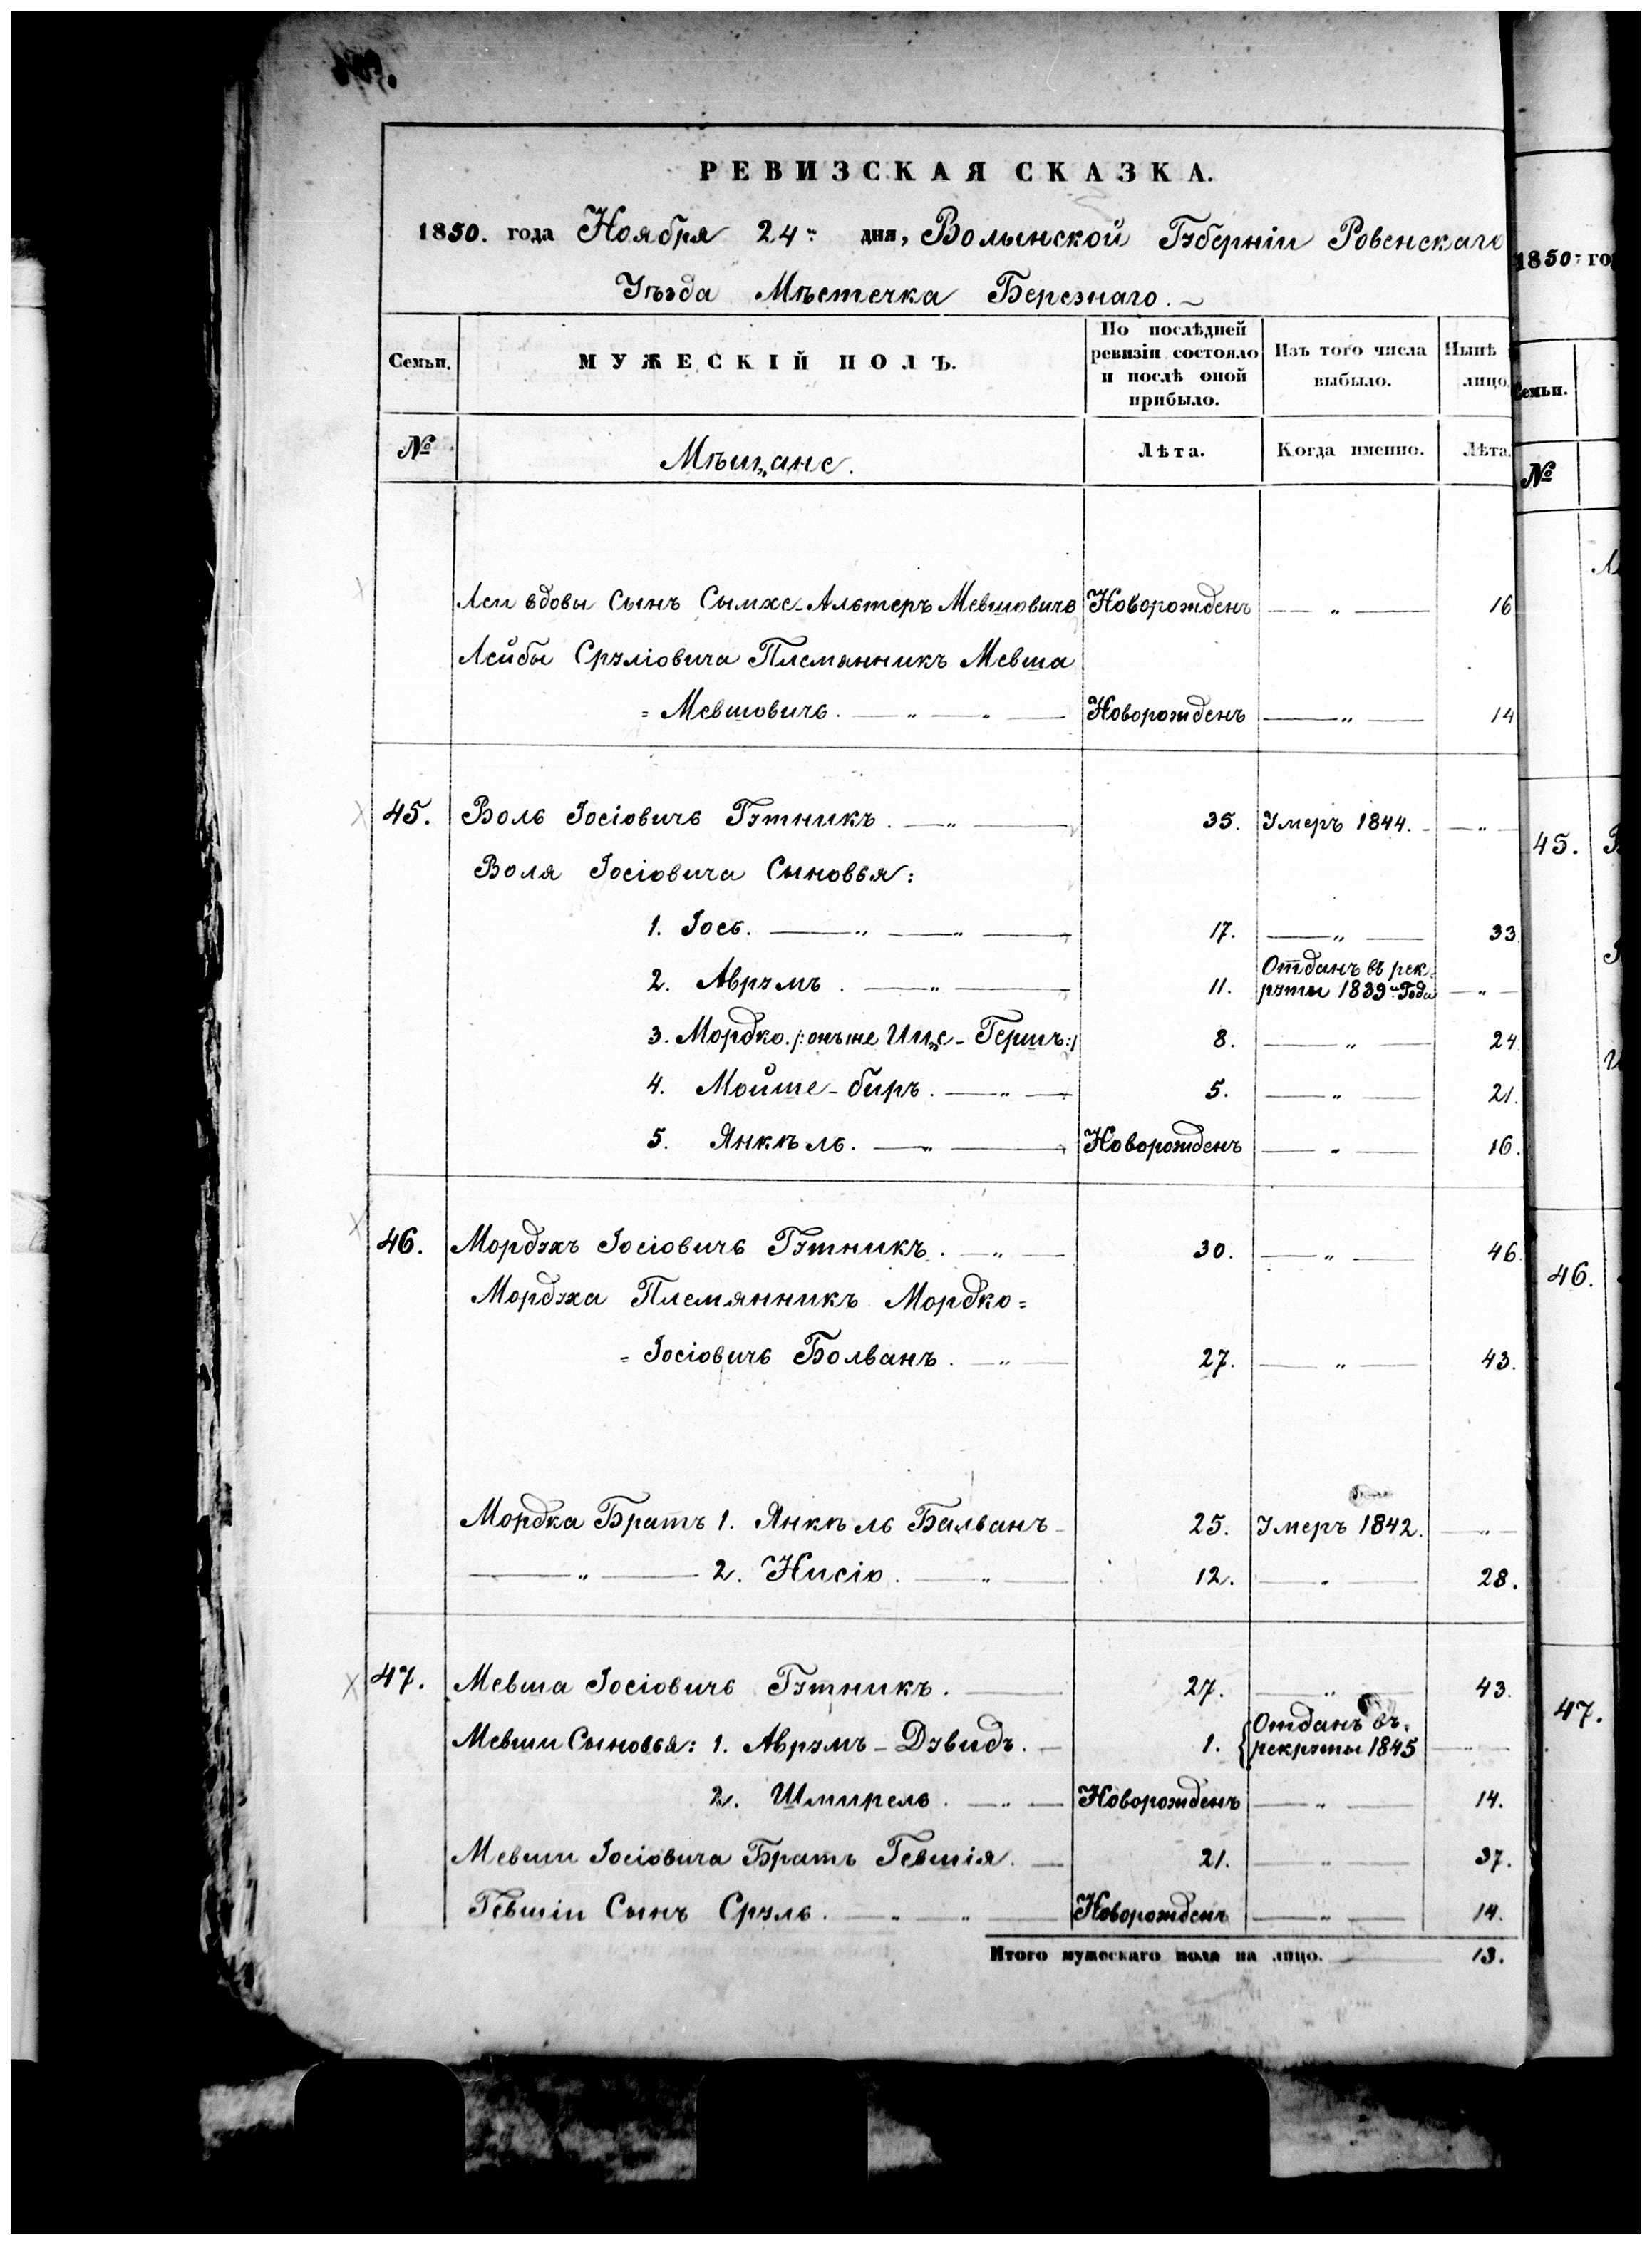 РЕВИЗСКАЯ СКАЗКА.
1850. года Ноября 24го дня, Волынской Губерніи Ровенскаго
Уѣзда Мѣстечка Березнаго.
Семьи. МУЖЕСКІЙ ПОЛЪ. По послѣдней ревизіи состояло и послѣ оной прибыло. Изъ того числа выбыло. Нынѣ лицо.
№ Мѣщане. Лѣта. Когда именно. Лѣта.
Леи вдовы Сынъ Сымхе-Альтеръ Мевшовичъ Новорожденъ — „ — 16
Лейбы Сруліовича Племянникъ Мевша
= Мевшовичь. — „ — „ — Новорожденъ — „ — 14
45. Воль Іосіовичь Гутникъ. — „ — 35. Умеръ 1844. — „ —
Воля Іосіовича Сыновья:
1. Іось. — „ — „ — 17. — „ — 33.
2. Аврумъ. — „ — 11. Отданъ въ рек=
руты 1839го Года — „ —
3. Мордко /:онъ же Ице-Гершъ:/ 8. — „ — 24
4. Мойше-биръ. — „ — 5. — „ — 21.
5. Янкѣль. — „ — Новорожденъ — „ — 16.
46. Мордухъ Іосіовичь Гутникъ. — „ — 30. — „ — 46
Мордуха Племянникъ Мордко=
= Іосіовичь Болванъ. — „ — 27. — „ — 43.
Мордка Братъ 1. Янкѣль Балванъ — 25. Умеръ 1842. — „ —
— „ — 2. Нисіо. — „ — 12. — „ — 28.
47. Мевша Іосіовичь Гутникъ. — 27. — „ — 43.
Мевши Сыновья: 1. Аврумъ-Дувидъ. — 1. Отданъ въ
рекруты 1845 — „ —
2. Шмирель. — „ — Новорожденъ — „ — 14.
Мевши Іосіовича Братъ Гевшія. — 21. — „ — 37.
Гевшіи Сынъ Сруль. — „ — „ — Новорожденъ — „ — 14.
Итого мужескаго пола на лицо. 13.
1850: го
Семьи.
№
45.
46.
47.